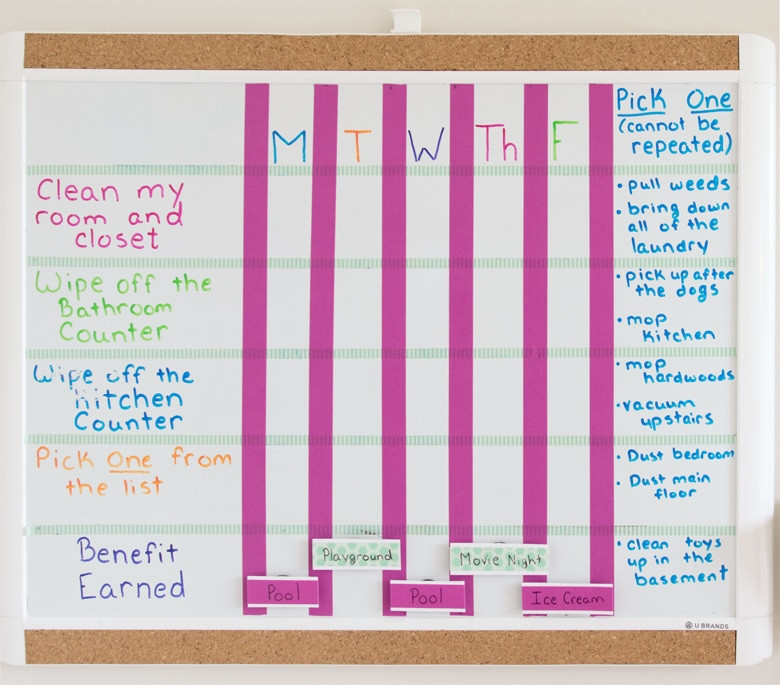 M T W Th F
Clean my
room and
closet
Wipe off the
Bathroom
Counter
Wipe off the
Kitchen
Counter
Pick One from
the list
Benefit
Earned
Pool
Playground
Pool
Movie Night
Ice Cream
Pick One
(cannot be
repeated)
• pull weeds
• bring down
all of the
laundry
• pick up after
the dogs
• mop
Kitchen
• mop
hardwoods
• vacuum
upstairs
• Dust bedroom
• Dust main
floor
• clean toys
up in the
basement
U BRANDS